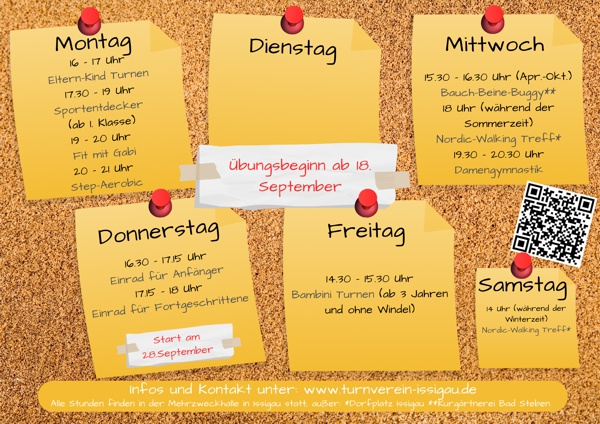 Montag
16 - 17 Uhr
Eltern-Kind Turnen
17.30 - 19 Uhr
Sportentdecker
(ab 1. Klasse)
19 - 20 Uhr
Fit mit Gabi
20 - 21 Uhr
Step-Aerobic
Dienstag
Mittwoch
15.30 - 16.30 Uhr (Apr.-Okt.)
Bauch-Beine-Buggy**
18 Uhr (während der
Sommerzeit)
Nordic-Walking Treff*
19.30 - 20.30 Uhr
Damengymnastik
Übungsbeginn ab 18.
September
Donnerstag
16.30 - 17.15 Uhr
Einrad für Anfänger
17.15 - 18 Uhr
Einrad für Fortgeschrittene
Start am
28.September
Freitag
14.30 - 15.30 Uhr
Bambini Turnen (ab 3 Jahren
und ohne Windel)
Samstag
14 Uhr (während der
Winterzeit)
Nordic-Walking Treff*
Infos und Kontakt unter: www.turnverein-issigau.de
Alle Stunden finden in der Mehrzweckhalle in Issigau statt, außer: *Dorfplatz Issigau **Kurgärtnerei Bad Steben